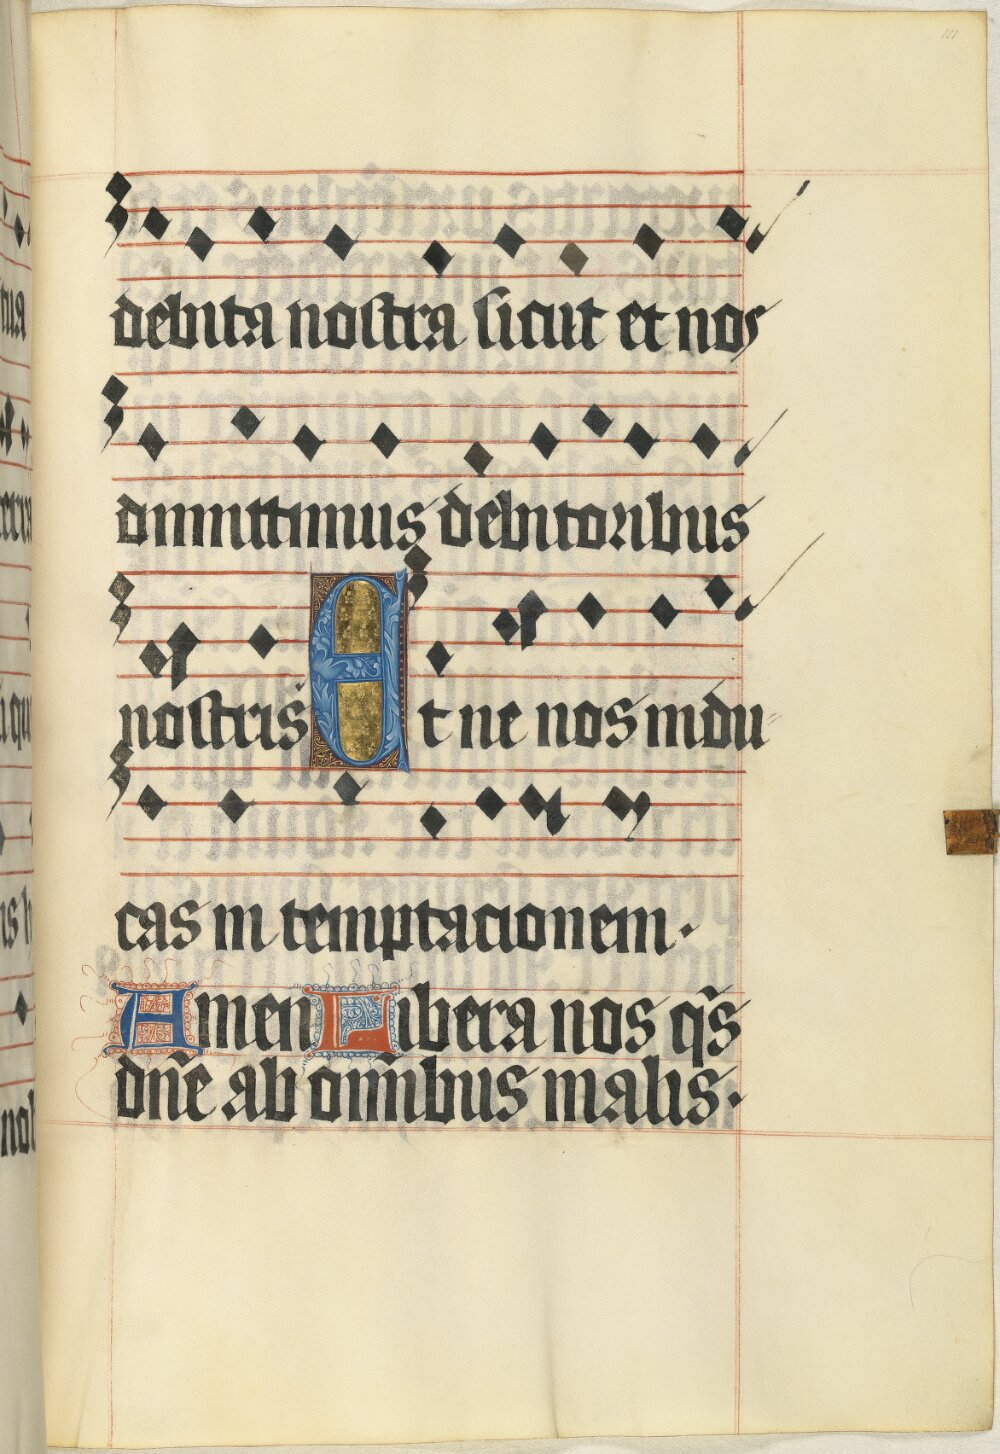 debita nostra sicut et nos
dimittimus debitoribus
nostris Et ne nos indu
cas in temptacionem.
Amen Libera nos qs̄
dn̄e ab om̄ibus malis.